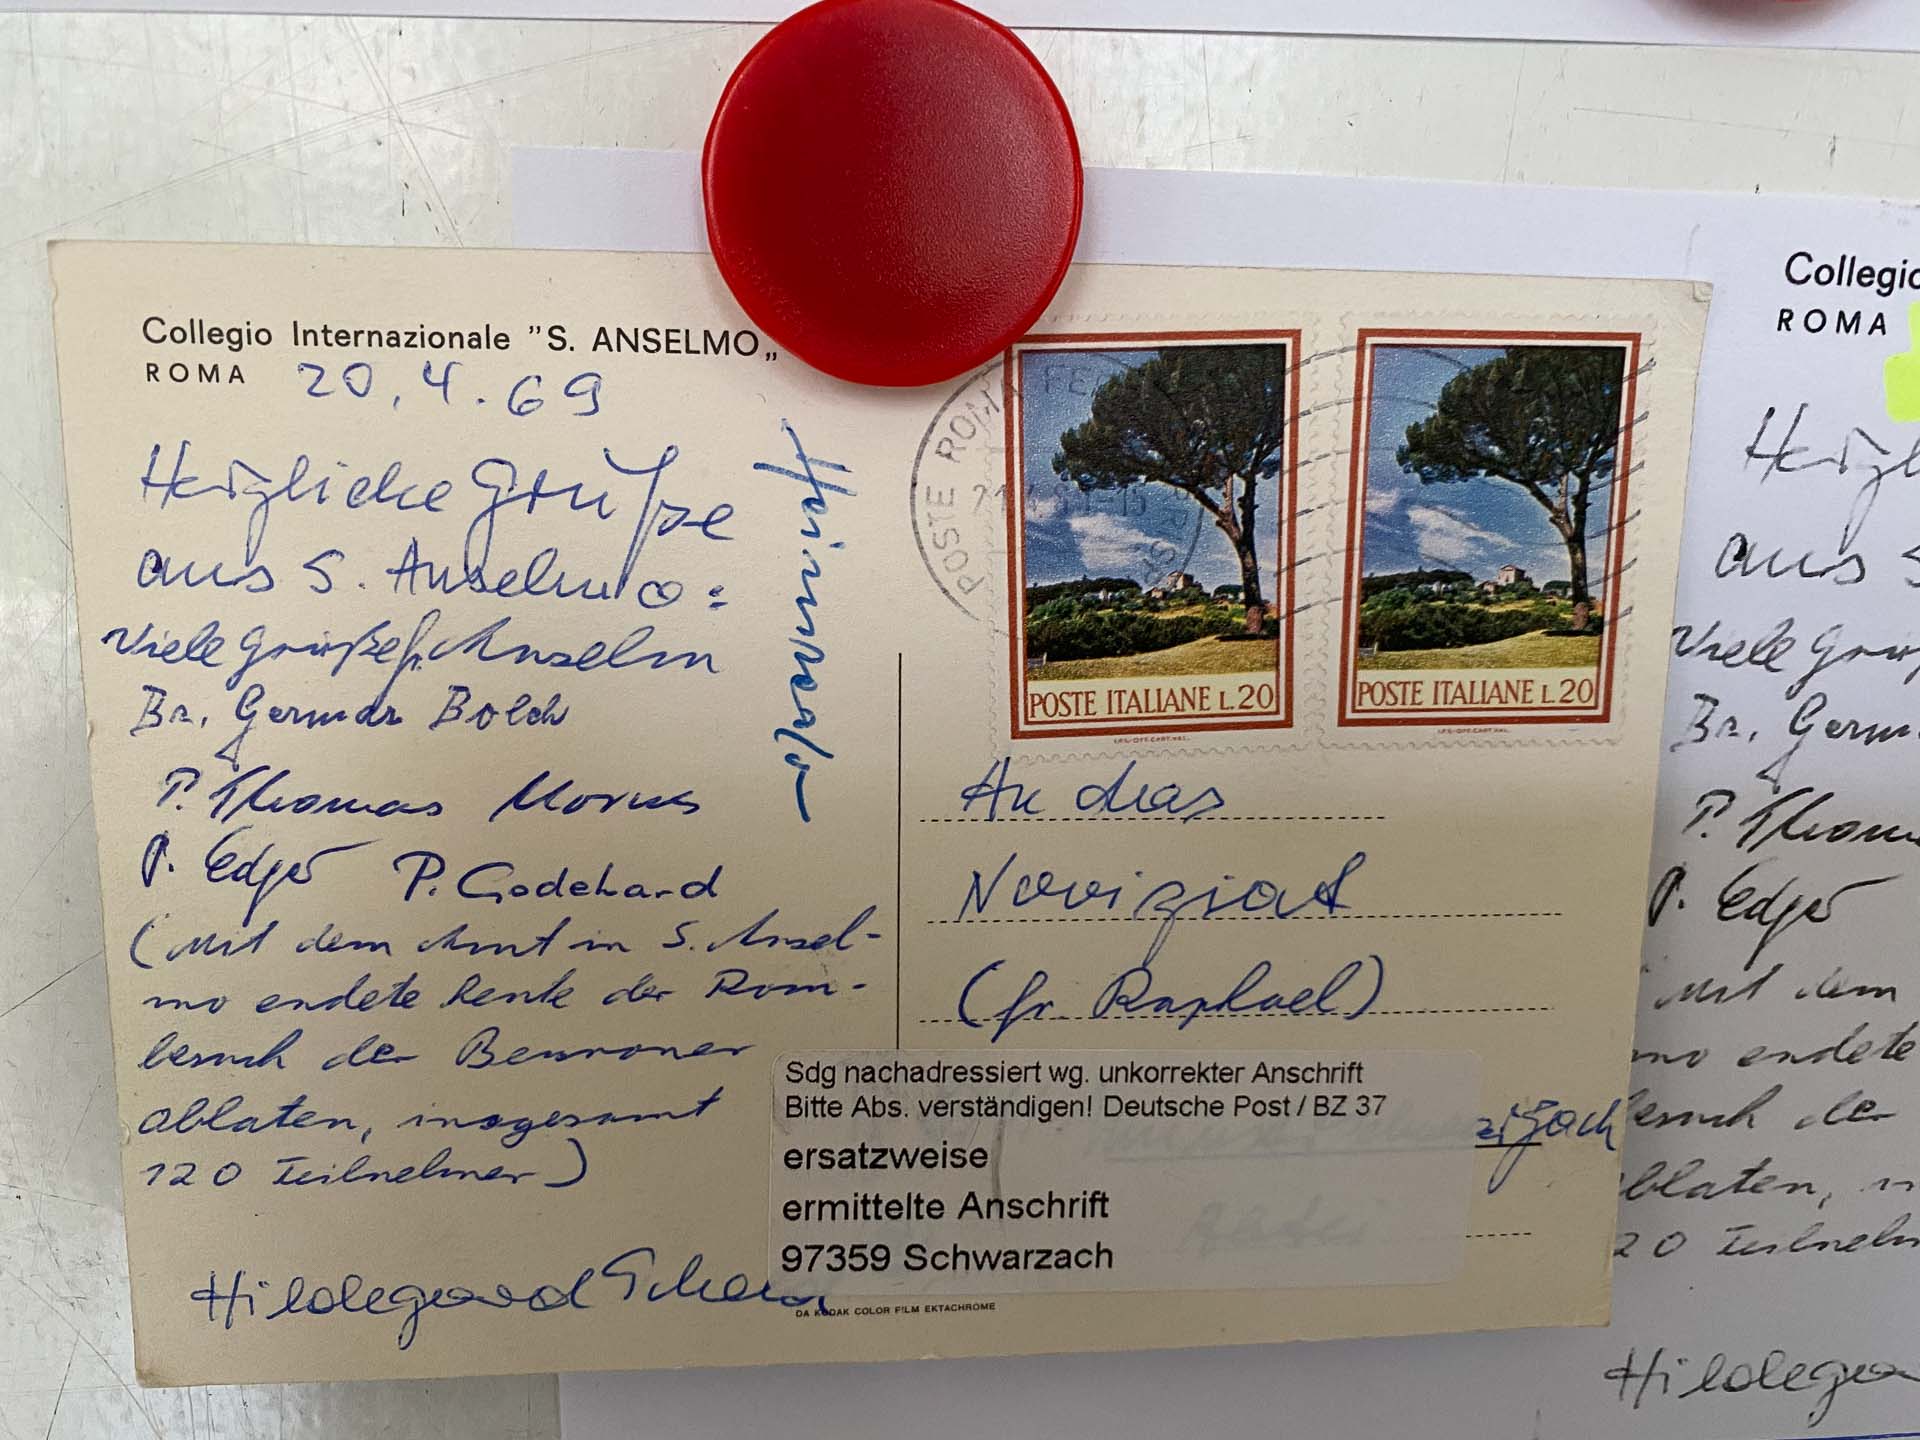 Collegio Internazionale "S. ANSELMO„
ROMA 20.4.69
Herzliche Grüße
aus S. Anselmo:
Viele Grüße fr. Anselm
Br. German Bolch
P. Thomas Morus
P. Edgar P. Godehard
(Mit dem Amt in S. Ansel-
mo endete heute der Rom-
besuch der Beuroner
Oblaten, insgesamt
120 Teilnehmer)
Hildegard
POSTE ROMA FE
POSTE ITALIANE L.20
POSTE ITALIANE L.20
An das
Noviziat
(fr. Raphael)
Sdg nachadressiert wg. unkorrekter Anschrift
Bitte Abs. verständigen! Deutsche Post / BZ 37
ersatzweise
ermittelte Anschrift
97359 Schwarzach
Abtei
DA KODAK COLOR FILM EKTACHROME
Collegio
ROMA
Herzl
aus S
Viele Grüß
Br. Germ
P. Thom
P. Edgar
Mit dem
mo endete
besuch der
blaten, in
20 Teilneh
Hildega